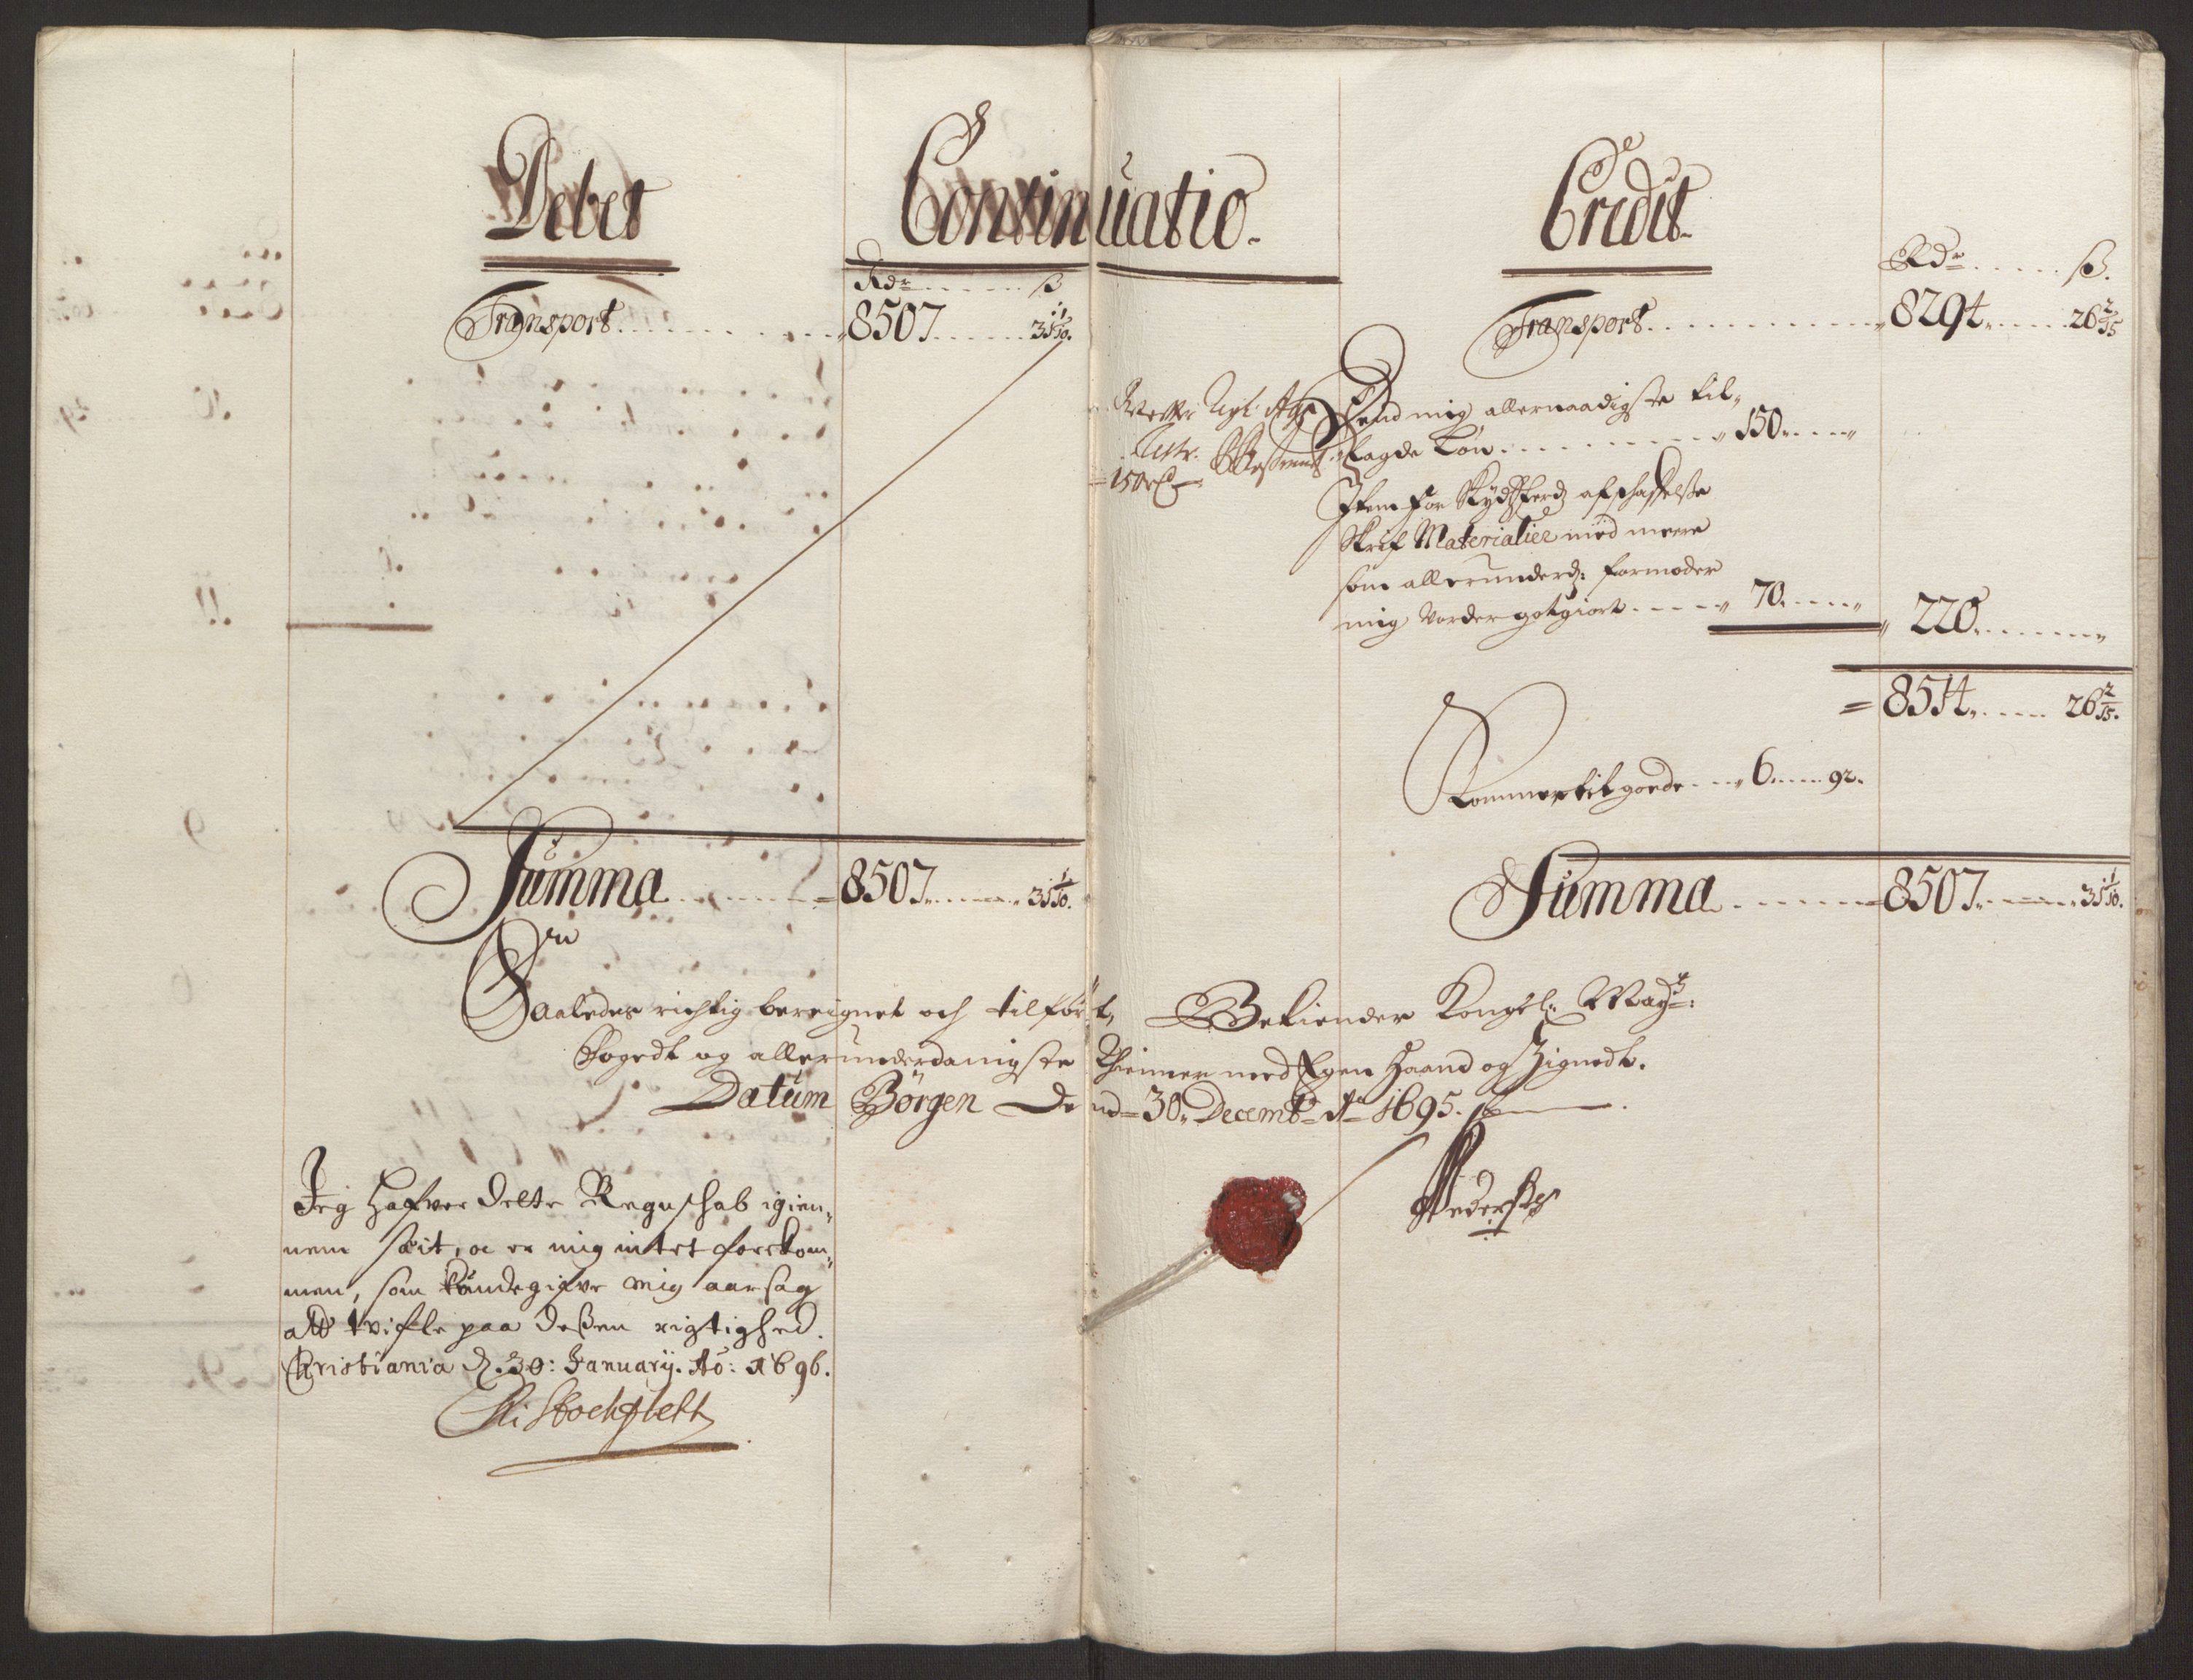 Debet
Continuatio.
Credit
Rdr ß
Transport 8507 31 1/10.
Summa 8507 31 1/10.
Rdr ß.
Transport 8294 26 2/15
150 rd
Dend mig allernaadigste til„
lagde Løn 150
Item for Skydsferd afschaffelse
Skrif Materialier med meere
som allerunderd: formoder
mig vorder gotgiort 70
220
8514 26 2/15.
Kommer til goede 6 92.
Summa 8507 31 1/10.
Saaledes richtig beregnet och tilført, Bekiender Kongel: Mayts:
Fogedt og allerunderdanigste Thienner med Egen Haand og Zignedt.
Datum Börgen Dend 30 Decembr Ao 1695.
Jeg Hafver dette Regnschab igien„
nem seit, oc er mig intet forekom„
men, som kunde gifve mig aarsag
att tvifle paa deßen rigtighed.
Christiania d. 30: Januarij. Ao: 1696.
Stockfleth